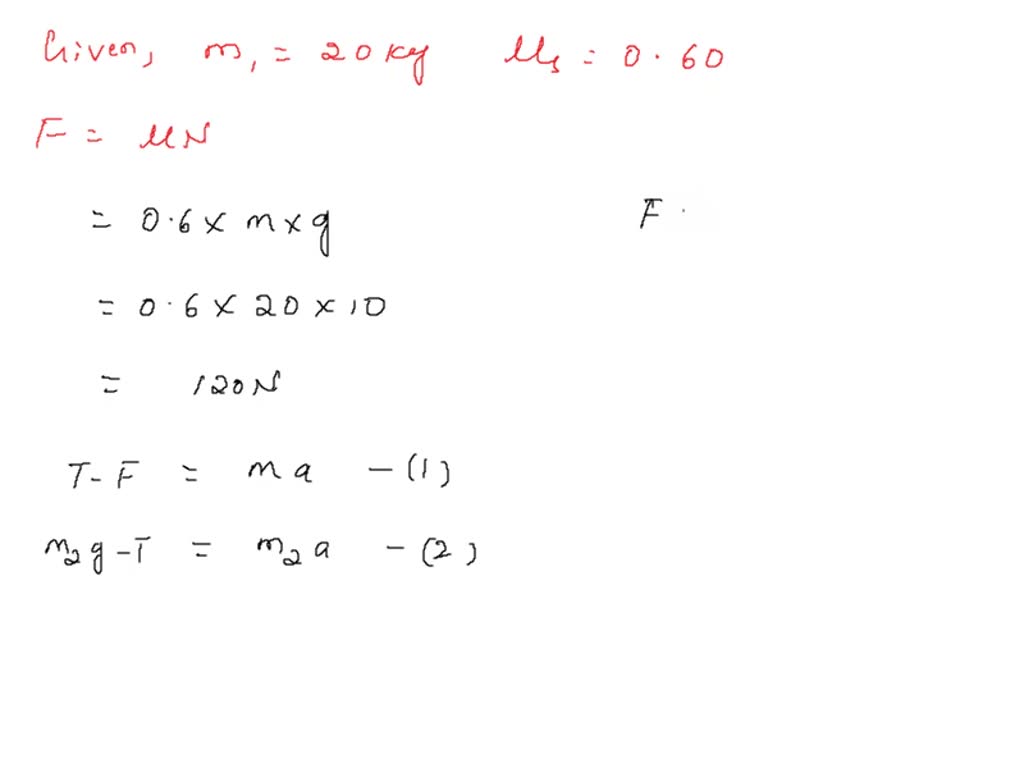 Given, m₁ = 20 kg μₛ = 0.60
F = μN
= 0.6 × m × g
= 0.6 × 20 × 10
= 120N
T - F = ma - (1)
m₂g - T = m₂a - (2)
F